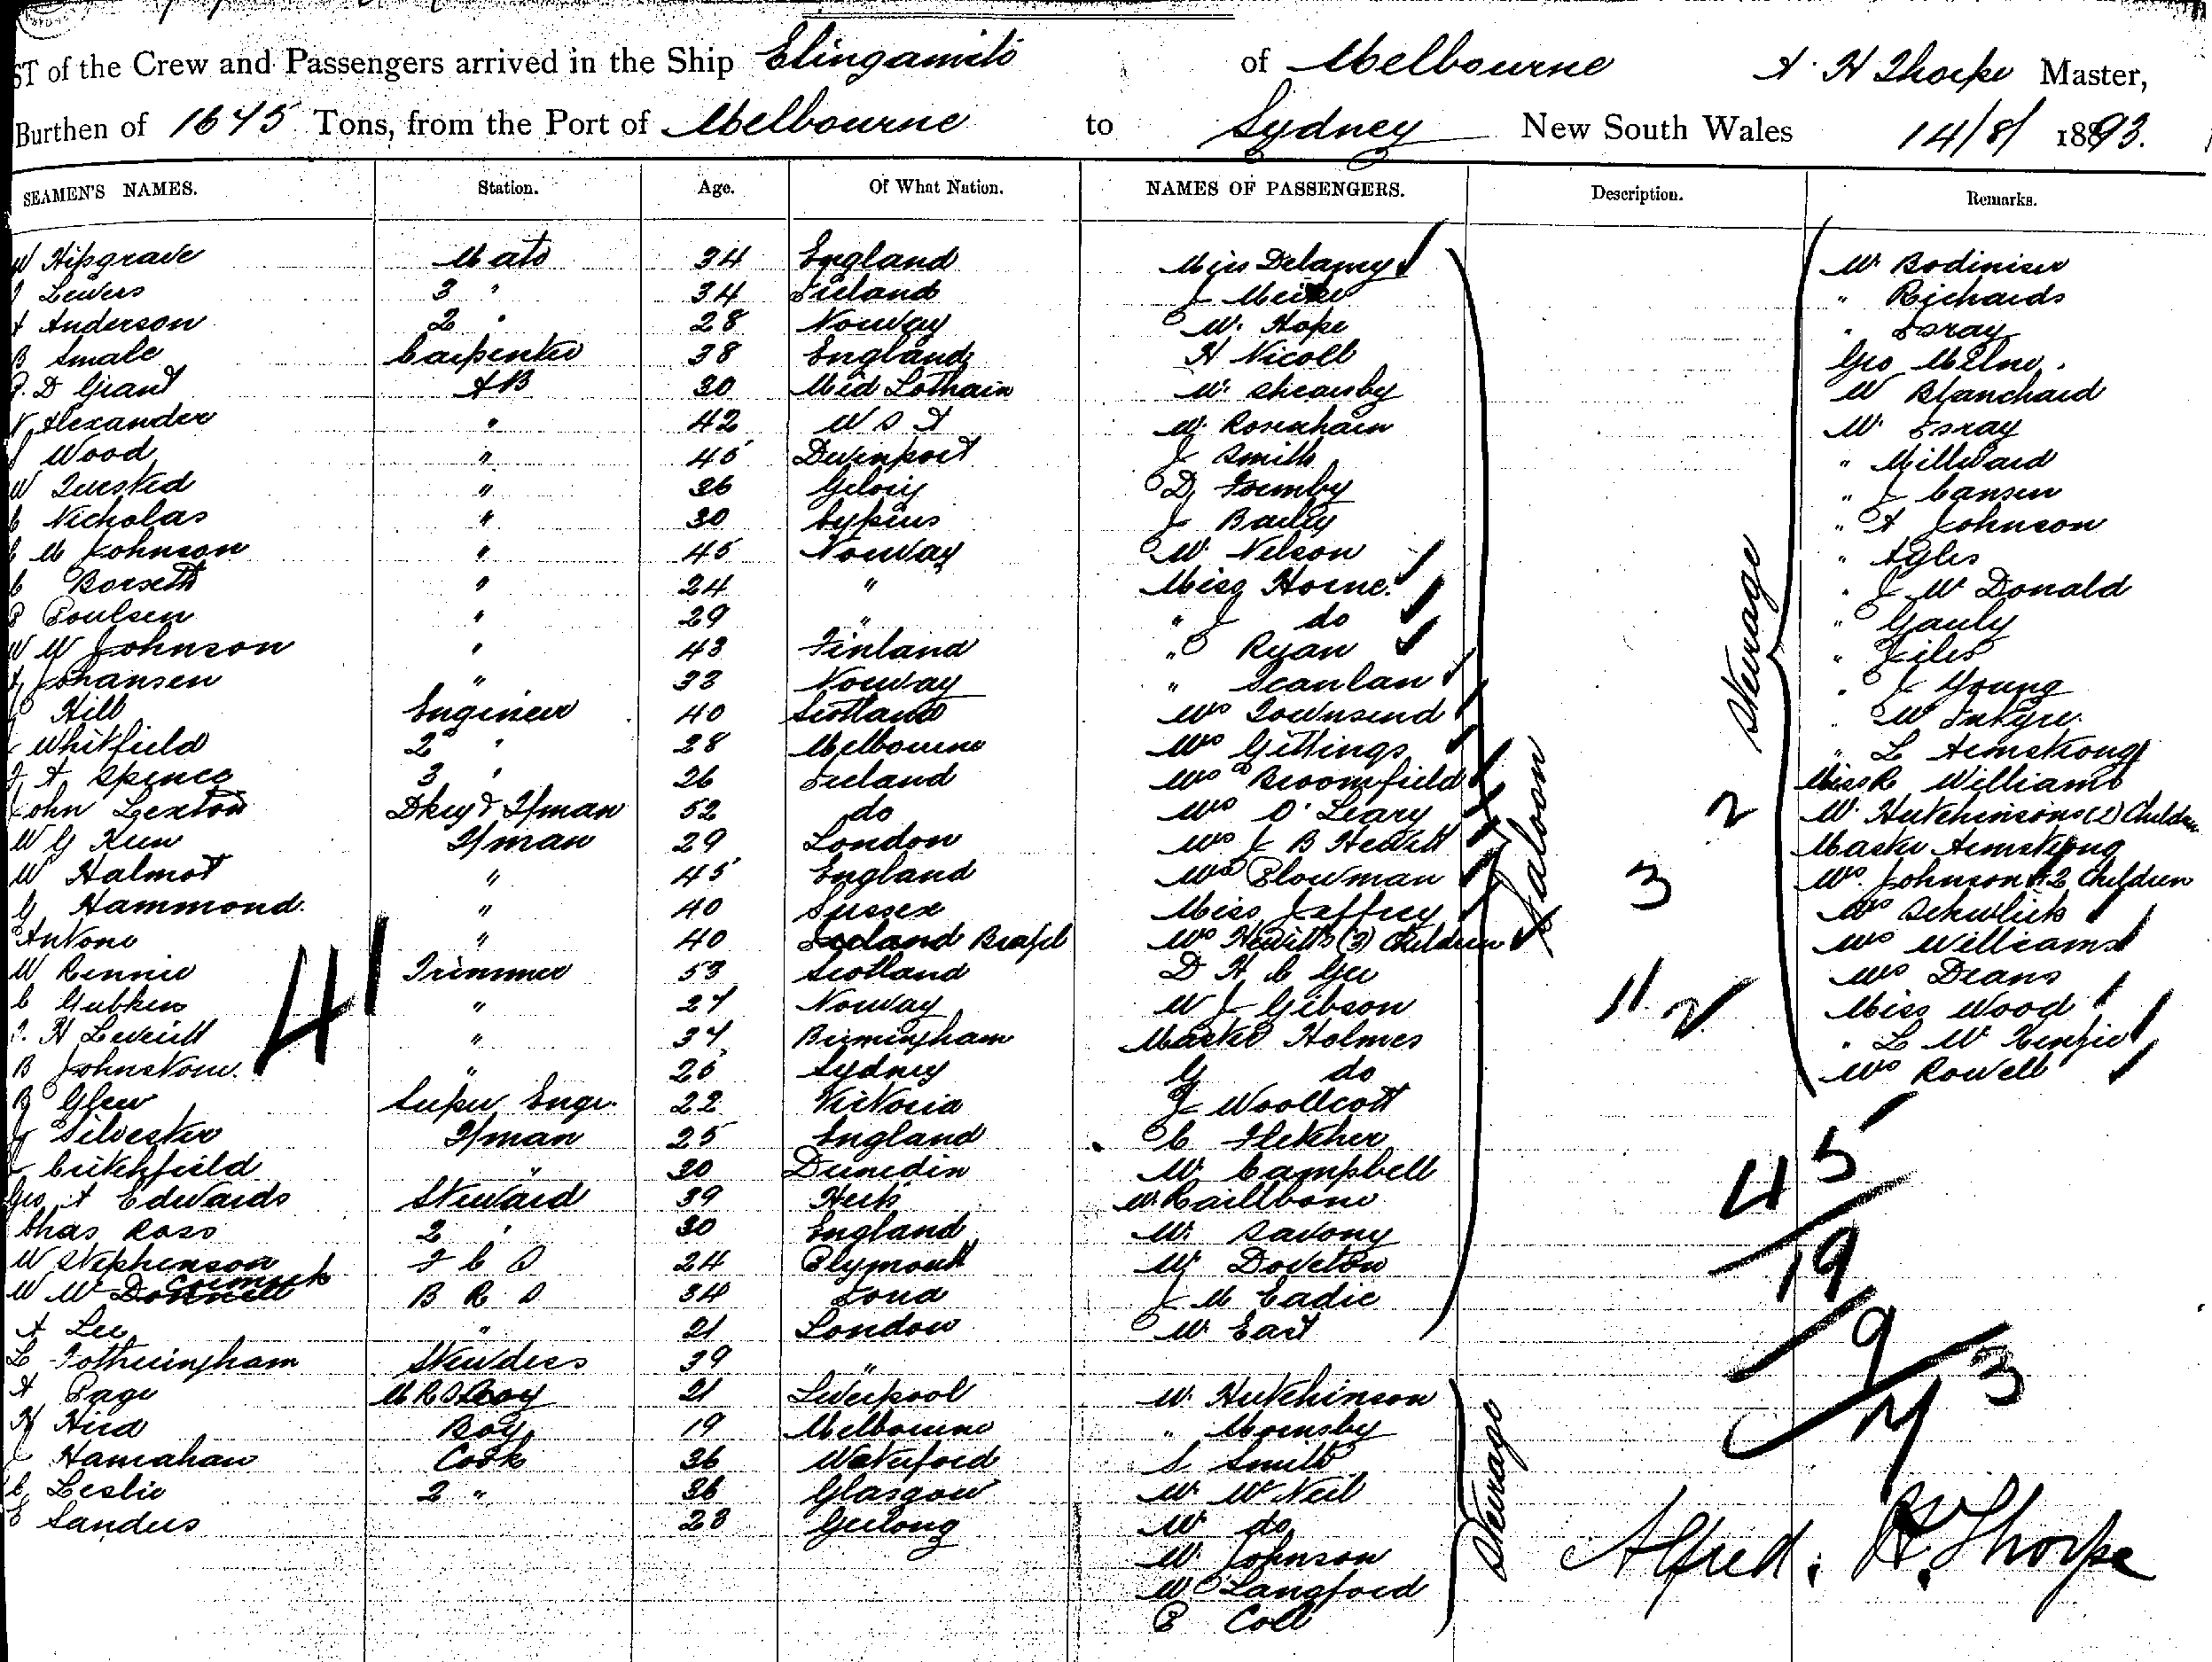 ST of the Crew and Passengers arrived in the Ship Elingamite of Melbourne A. H Thorpe Master,
Burthen of 1675 Tons, from the Port of Melbourne to Sydney New South Wales 14/8/ 1893.
SEAMEN'S NAMES. Station. Age. Of What Nation. NAMES OF PASSENGERS. Description. Remarks.
W Hipgrave Mate 34 England Miss Delaney Mr Bodiniser
J Lewers 3 " 34 Ireland J Meike " Richards
A Anderson 2 " 28 Norway W. Hope " Gray
B Smale Carpenter 38 England H Nicoll Geo Milne.
P. D Grant AB 30 Mid Lothain Mr Shearsby W Blanchard
N Alexander " 42 W S A Mr Rosenhain Mr Gray
J Wood " 45 Devenport J Smith " Millward
W Quested " 36 D, Formby " J Cansen
C Nicholas " 30 Cyprus J Baily " A Johnson
C M Johnson " 45 Norway W. Nelson " Ayles
C Borseth " 24 " Miss Horne. " J Mc Donald
P Poulsen " 29 " " J do " Gauly
W W Johnson " 43 Finland " Ryan " Jiles
A Johansen " 33 Norway " Scanlan " J Young
J Hill Engineer 40 Scotland Mrs Townsend Mc Intyre.
J Whitfield 2 " 28 Melbourne Mrs Gittings " L Armstrong
J A Spence 3 " 26 Ireland Mrs Broomfield Miss R Williams
John Sexton Dkey & F/man 52 do Mrs O'Leary 2 Mr Hutchinsons (2) Children
W G Keen F/man 29 London Mrs J B Hewitt Master Armstrong
W Halmot " 45 England Mrs Plowman 3 Mrs Johnson & 2 Children
G Hammond. " 40 Sussex Miss Jaffrey Mrs Schulick
Antone " 40 Brazil Mrs Hewitts (3) Children Mrs Williams
W Rennie Trimmer 53 Scotland D H C Gee Mrs Deans
C Gubken " 27 Norway W J Gibson 11 2 Miss Wood
J. H Leveritt " 34 Birmingham Master Holmes " L Mc Kenzie
B Johnstone. " 25 Sydney G do Mrs Rowell
41
Saloon
Steerage
R Glew Super Engr. 22 Victoria J Woollcott
J Silvester F/man 25 England C Fletcher
J Critchfield " 30 Dunedin W Campbell 45
Geo A Edwards Steward 39 Herts W. Caillbone
Chas Ross 2 " 30 England Mr. Savony 19
W Stephenson F C S 24 Plymouth Mr Doveton
W Mc Cormick B R S 34 Iona J M Eadie
A Lee " 21 London W. East 9
L Fotheringham Stewdess 39 " 3
A Page M R S Boy 21 Liverpool Mr Hutchinson
H Hird Boy 19 Melbourne " Mornsby
J Hanrahan Cook 36 Waterford S Smith
C Leslie 2 " 36 Glasgow Mr Mc Neil
E Sanders 23 Geelong Mr do
Steerage
Mr Johnson
Mr Langford
P Coll
Alfred. H. Thorpe